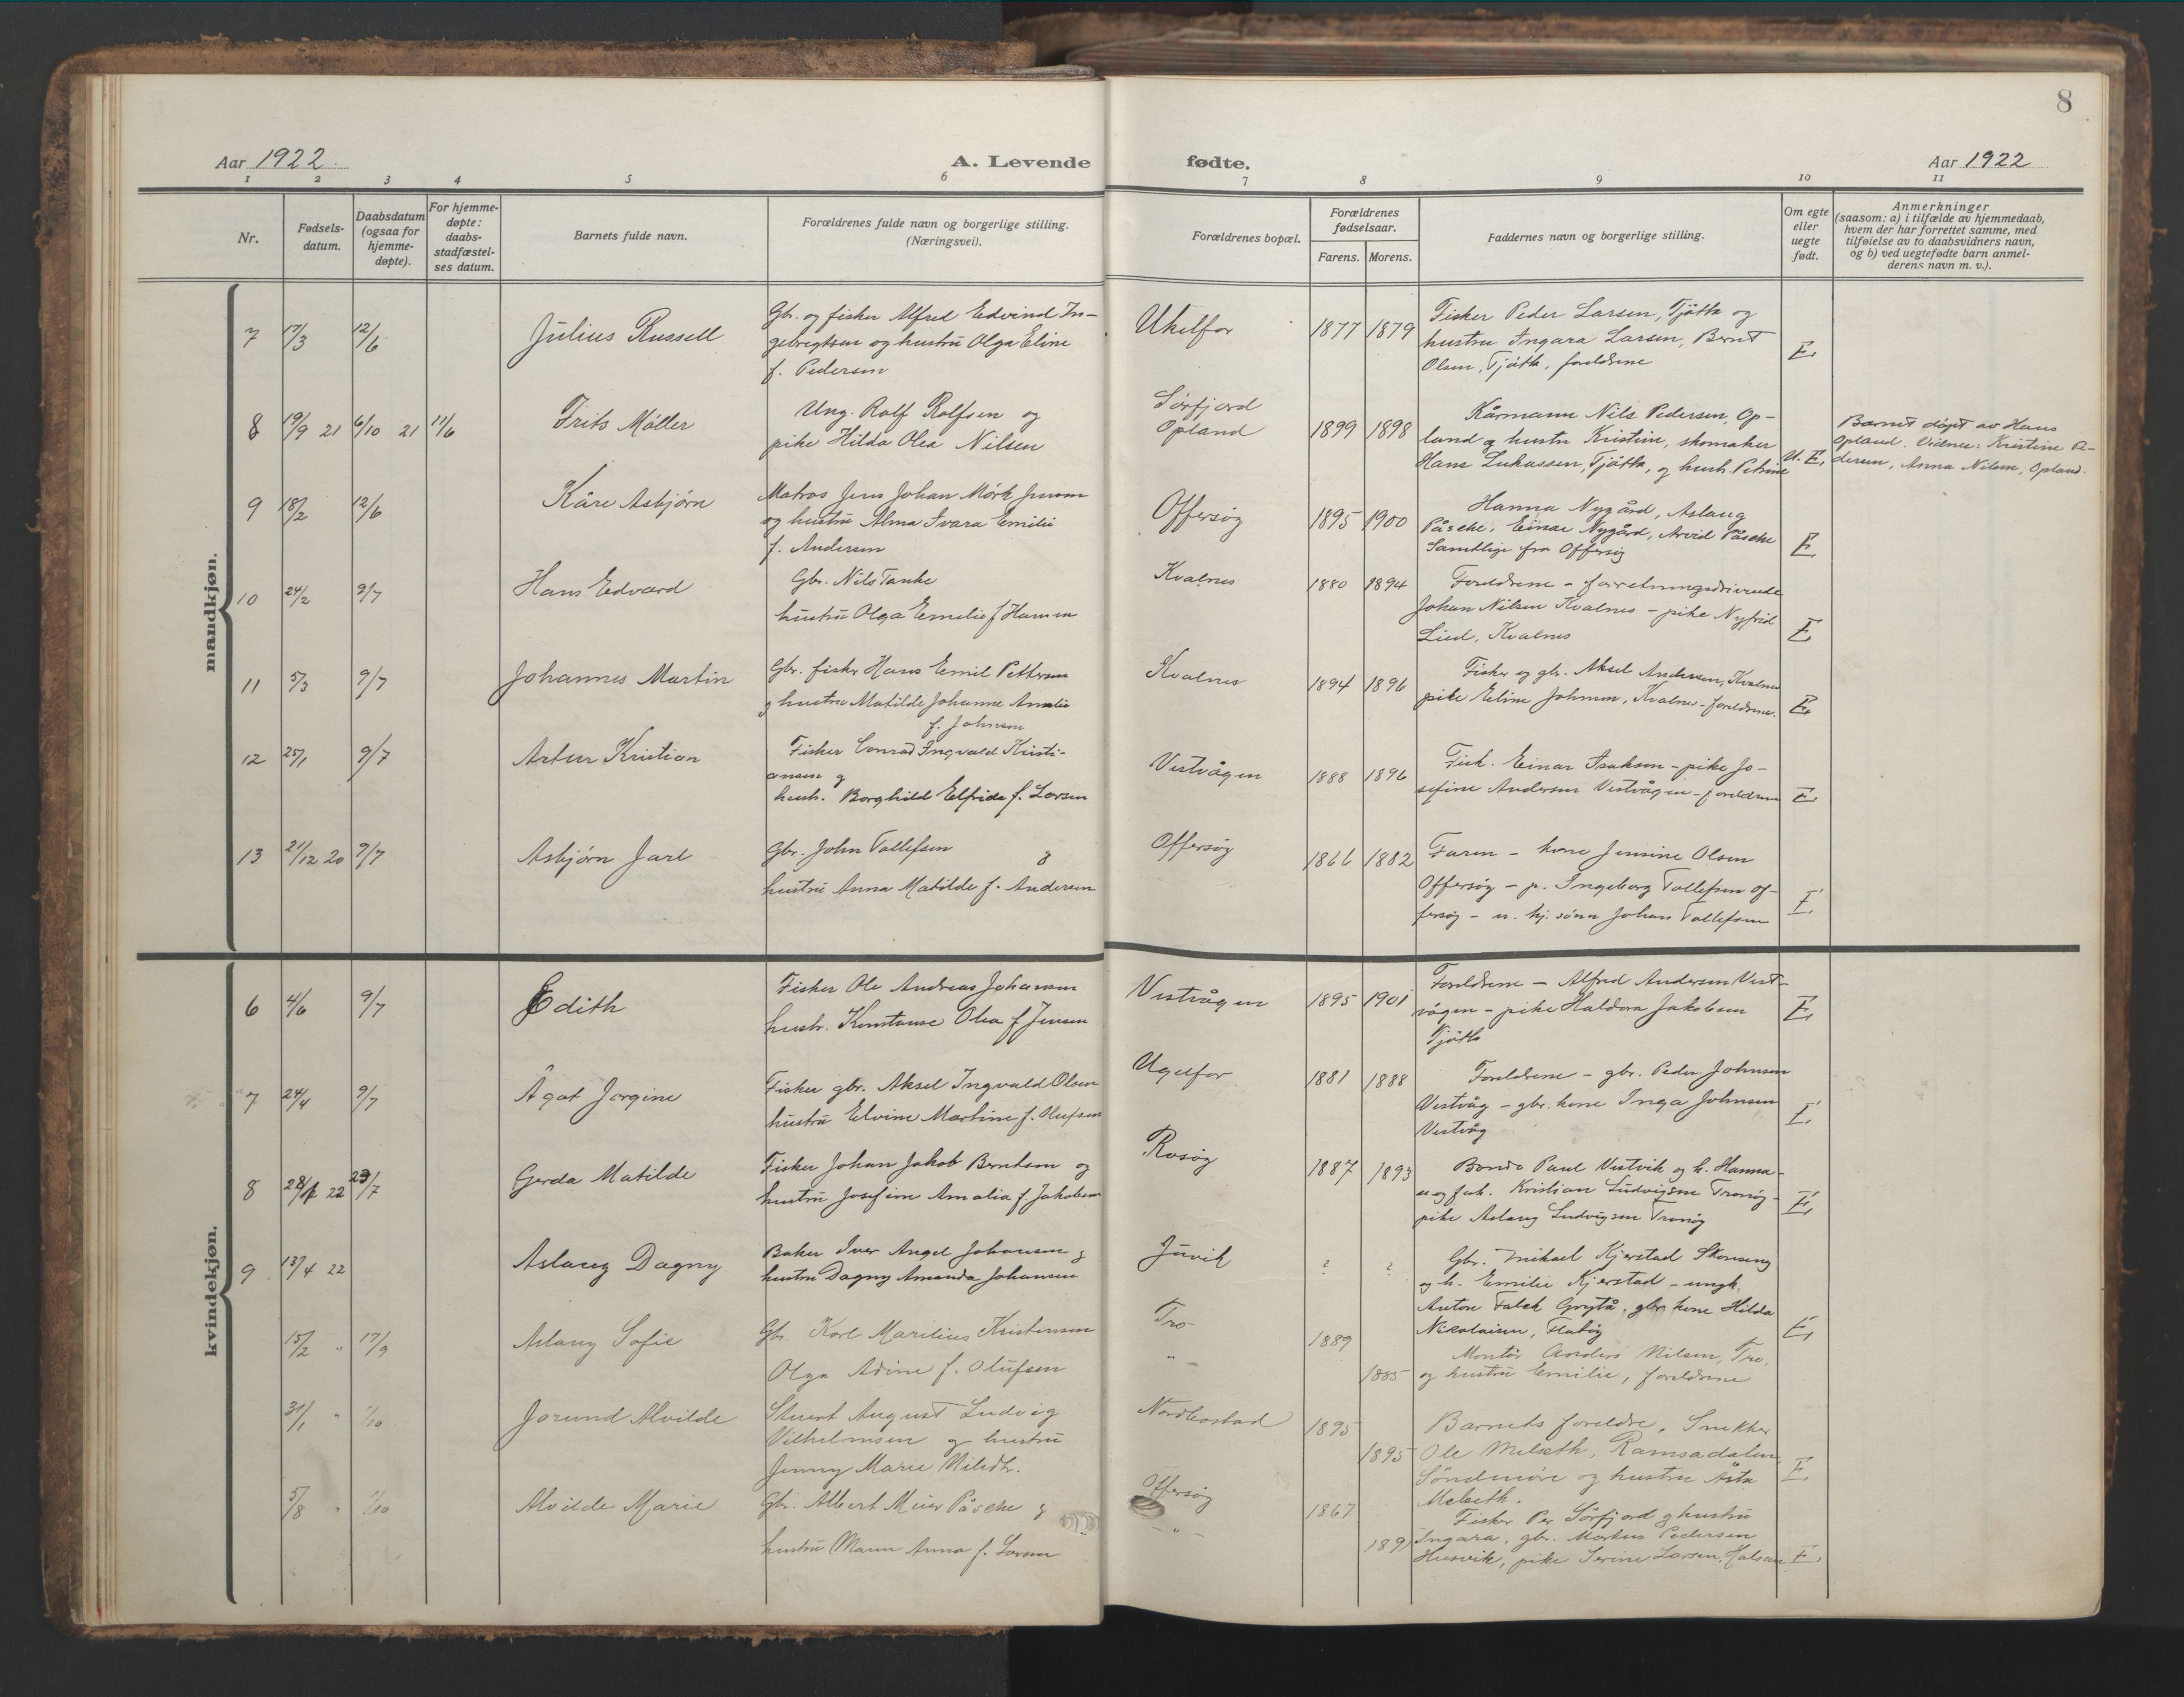 8
Aar 1922
A. Levende fødte.
Aar 1922
1 2 3 4 5 6 7 8 9 10 11
Nr.
Fødsels-
datum.
Daabsdatum
(ogsaa for
hjemme-
døpte).
For hjemme-
døpte:
daabs-
stadfæstel-
ses datum.
Barnets fulde navn.
Forældrenes fulde navn og borgerlige stilling.
(Næringsvei).
Forældrenes bopæl.
Forældrenes
fødselsaar.
Farens. Morens.
Faddernes navn og borgerlige stilling.
Om egte
eller
uegte
født.
Anmerkninger
(saasom: a) i tilfælde av hjemmedaab,
hvem der har forrettet samme, med
tilføielse av to daabsvidners navn,
og b) ved uegtefødte barn anmel-
derens navn m. v.).
mandkjøn.
7 17/3 12/6 Julius Russell
Gbr. og fisker Alfred Edvind In-
gebrigtsen og hustru Olga Eline
f. Pedersen
Ukelfor 1877 1879
Fisker Peder Larsen, Tjötta og
hustru Ingara Larsen, Bernt
Olsen, Tjötta, foreldrene
E.
8 19/9 21 6/10 21 11/6 Frits Möller
Ung. Rolf Rolfsen og
pike Hilda Olea Nilsen
Sörfjord
Opland 1899 1898
Kårmann Nils Pedersen, Op-
land og hustru Kristine, skomaker
Hans Lukassen, Tjötta, og hustr. Petrine
U. E.
Barnet döpt av Hans
Opland. Vidner: Kristine Pe-
dersen, Anna Nilsen, Opland.
9 18/2 12/6 Kåre Asbjörn
Matros Jens Johan Mörk Jensen
og hustru Alma Ivara Emilie
f. Andersen
Offersöy 1895 1900
Hanna Nygård, Aslaug
Påsche, Einar Nygård, Arvid Påsche
Samtlige fra Offersöy
E.
10 24/2 9/7 Hans Edvard
Gbr. Nils Tanke
hustru Olga Emelie f Hamm
Kvalnes 1880 1894
Foreldrene - forretningsdrivende
Johan Nilsen Kvalnes - pike Nyfrid
Lied, Kvalnes
E.
11 5/3 9/7 Johannes Martin
Gbr. fisker Hans Emil Pettersen
g hustru Matilde Johanne Amalie
f. Johnsen
Kvalnes 1894 1896
Fisker og gbr. Aksel Andersen, Kvalnes
pike Eline Johnsen, Kvalnes - foreldrene.
E.
12 25/1 9/7 Artur Kristian
Fisker Conrad Ingvald Kristi-
ansen g
hustr. Borghild Elfrida f. Larsen
Vestvågen 1888 1896
Fisk. Einar Isaksen - pike Jo-
sefine Andersen Vestvågen - foreldrene
E
13 21/12 20 9/7 Asbjörn Jarl
Gbr. John Tollefsen g
hustru Anna Matilde f. Andersen
Offersöy 1866 1882
Faren - kone Jensine Olsen
Offersöy - p. Ingeborg Tollefsen Of-
fersöy - u. hj. sönn Johan Tollefsen
E.
kvindekjøn.
6 4/6 9/7 Edith
Fisker Ole Andreas Johansen
hustr. Konstanse Olea f Jensen
Vestvågen 1895 1901
Foreldrene - Alfred Andersen Vest-
vågen - pike Haldora Jakobsen
Tjötta
E.
7 24/4 9/7 Ågot Jorgine
Fisker gbr. Aksel Ingvald Olsen
hustru Elvine Martine f. Olufsen
Ugelfor 1881 1888
Foreldrene - gbr. Peder Johnsen
Vestvåg - gbr. kone Inga Johnsen
Vestvåg
E.
8 22 23/7 Gerda Matilde
Fisker Johan Jakob Berntsen og
hustru Josefine Amalia f Jakobsen
Rosöy 1887 1893
Bonde Paul Vestvik og h. Hanna -
Kristian Ludvigsen Tronöy -
pike Aslaug Ludvigsen Tronöy
E.
9 13/4 22 Aslaug Dagny
Baker Iver Angel Johansen g
hustru Dagny Amanda Johansen
Juvik ? ?
Gbr. Mikael Kjerstad Skonseng
og h. Emilie Kjerstad - ungk.
Anton Falch Grytå, gbr. kone Hilda
Nicolaisen, Flatöy
E.
15/2 " 17/9 Aslaug Sofie
Gbr. Karl Marelius Kristensen
Olga Adine f. Olufsen
Tro
" -
1889
1885
Montör Anders Nilsen, Tro,
og hustru Emilie, foreldrene
31/1 " 1/10 Jorund Alvilde
Stuert August Ludvig
Vilhelmsen og hustru
Jenny Marie
Nordbostad 1895
1895
Barnets foreldre, Snekker
Ole Melseth, Ramsadalen,
Söndmöre og hustru Åsta
Melseth.
E.
5/8 " 1/10 Alvilde Marie
Gbr. Albert Meier Påsche g
hustru Maren Anna f. Larsen
Offersöy
- " -
1867
Fisker Per Sörfjord g hustru
Ingara, gbr. Markus Pedersen
Husvik, pike Serine Larsen,
E.